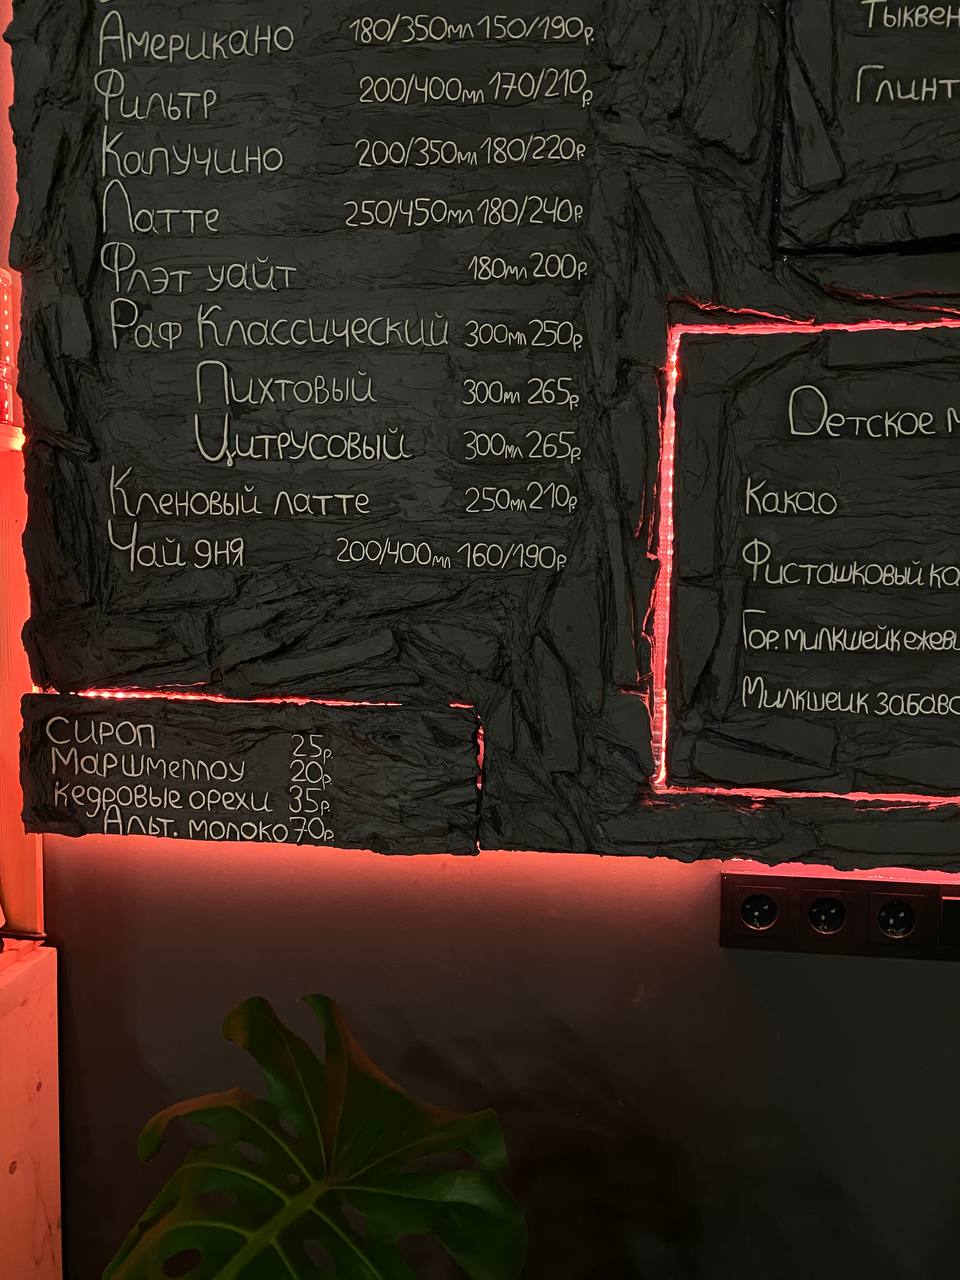 Американо 180/350мл 150/190р.
Фильтр 200/400мл 170/210р
Капучино 200/350мл 180/220р
Латте 250/450мл 180/240р
Флэт уайт 180мл 200р
Раф Классический 300мл 250р
Пихтовый 300мл 265р
Цитрусовый 300мл 265р
Кленовый латте 250мл 210р
Чай дня 200/400мл 160/190р
Сироп 25р
Маршмеллоу 20р
Кедровые орехи 35р
Альт. молоко 70р
Детское
Какао
Фисташковый
Гор. милкшейк
Милкшейк